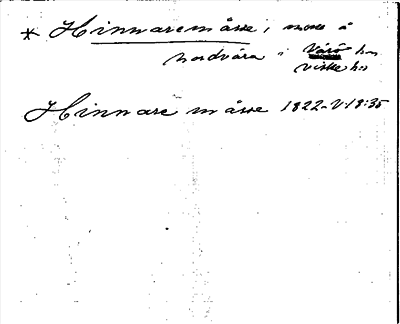 * Hinnaremåsse, mosse å
nordvära i Värö hn
viske hd
Hinnare måsse 1822-V-18:35